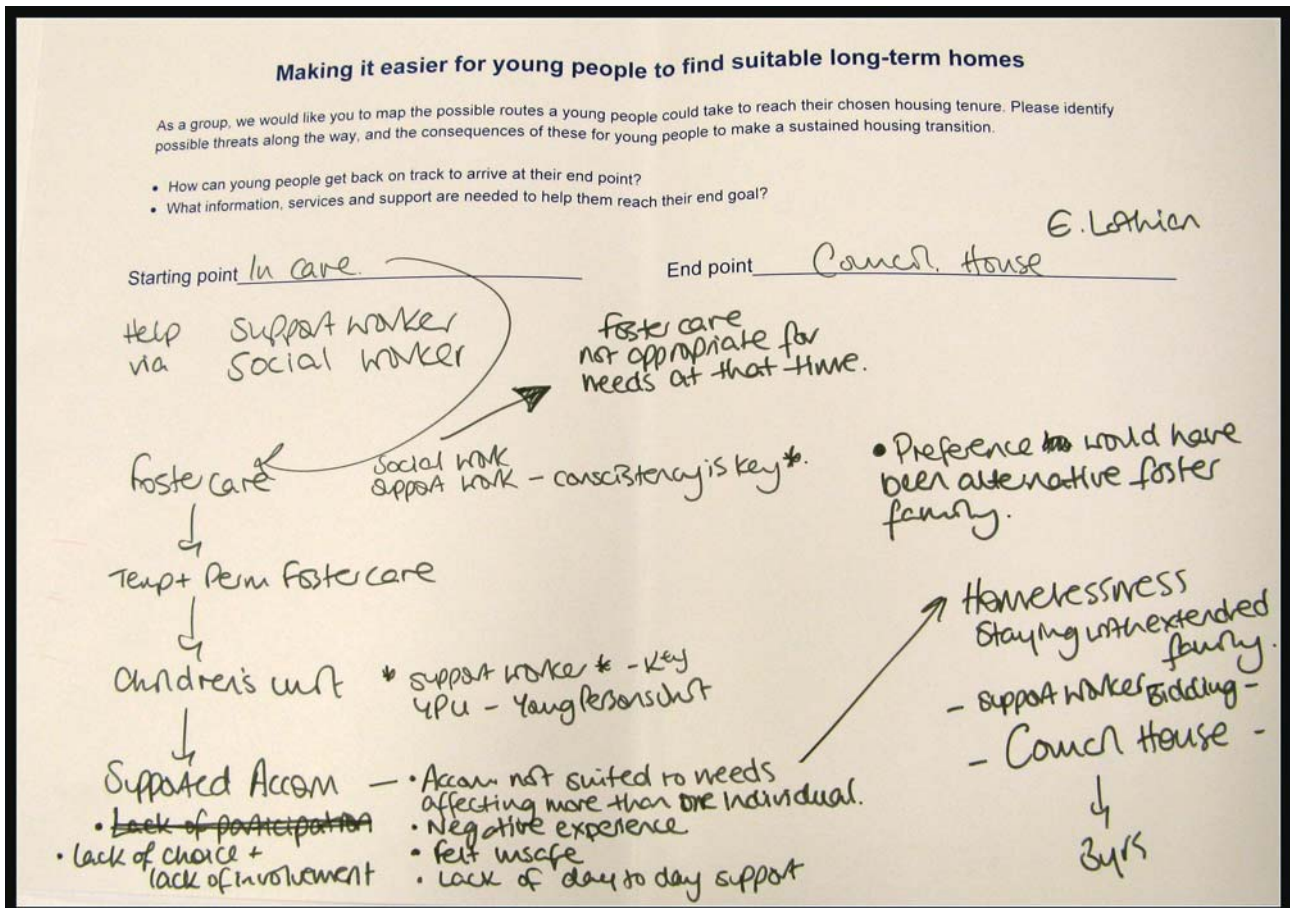 Making it easier for young people to find suitable long-term homes
As a group, we would like you to map the possible routes a young people could take to reach their chosen housing tenure. Please identify
possible threats along the way, and the consequences of these for young people to make a sustained housing transition.
• How can young people get back on track to arrive at their end point?
• What information, services and support are needed to help them reach their end goal?
E. Lothian
Starting point In care.
End point Council. House
Help support worker
via Social worker
foster care
not appropriate for
needs at that time.
foster care
Social work
support work – conscistency is key *.
• Preference would have
been alternative foster
family.
Temp + Perm Foster care
Children's unit
* support worker * - key
YPU – Young Persons Unit
Homelessness
Staying with extended
family.
– support worker Bidding –
– Council House –
3yrs
Supported Accom – • Accom not suited to needs
affecting more than one individual.
• Lack of participation
• Negative experience
• Lack of choice +
lack of involvement
• felt unsafe
• Lack of day to day support